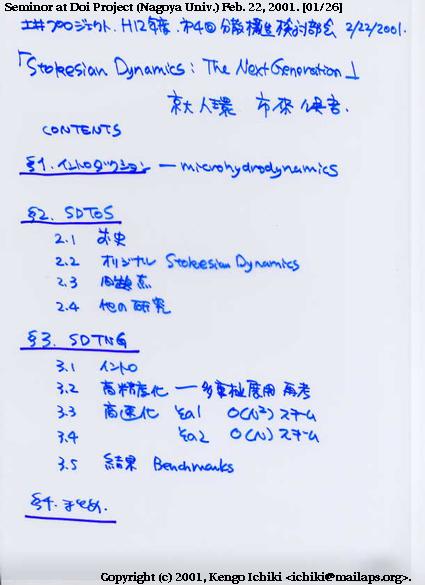 Seminor at Doi Project (Nagoya Univ.) Feb. 22, 2001. [01/26]
土井プロジェクト. H12年度. 第4回 分散構造検討部会 2/22/2001.
「Stokesian Dynamics : The Next Generation」
京大 人環 市來 健吾.
CONTENTS
§1. イントロダクション — microhydrodynamics
§2. SDTOS
2.1 歴史
2.2 オリジナル Stokesian Dynamics
2.3 問題点
2.4 他の研究
§3. SDTNG
3.1 イントロ
3.2 高精度化 — 多重極展開 再考
3.3 高速化 その1 O(N²) スキーム
3.4 その2 O(N) スキーム
3.5 結果 Benchmarks
§4. まとめ.
Copyright (c) 2001, Kengo Ichiki <ichiki@mailaps.org>.